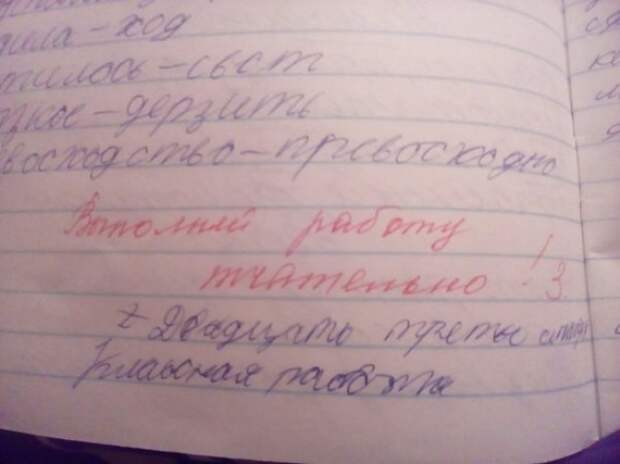 ход
тилось – свст
ткое – дерзить
восходство – превосходно
Выполняй работу
тчательно! 3
Двадцать третье
Классная работа